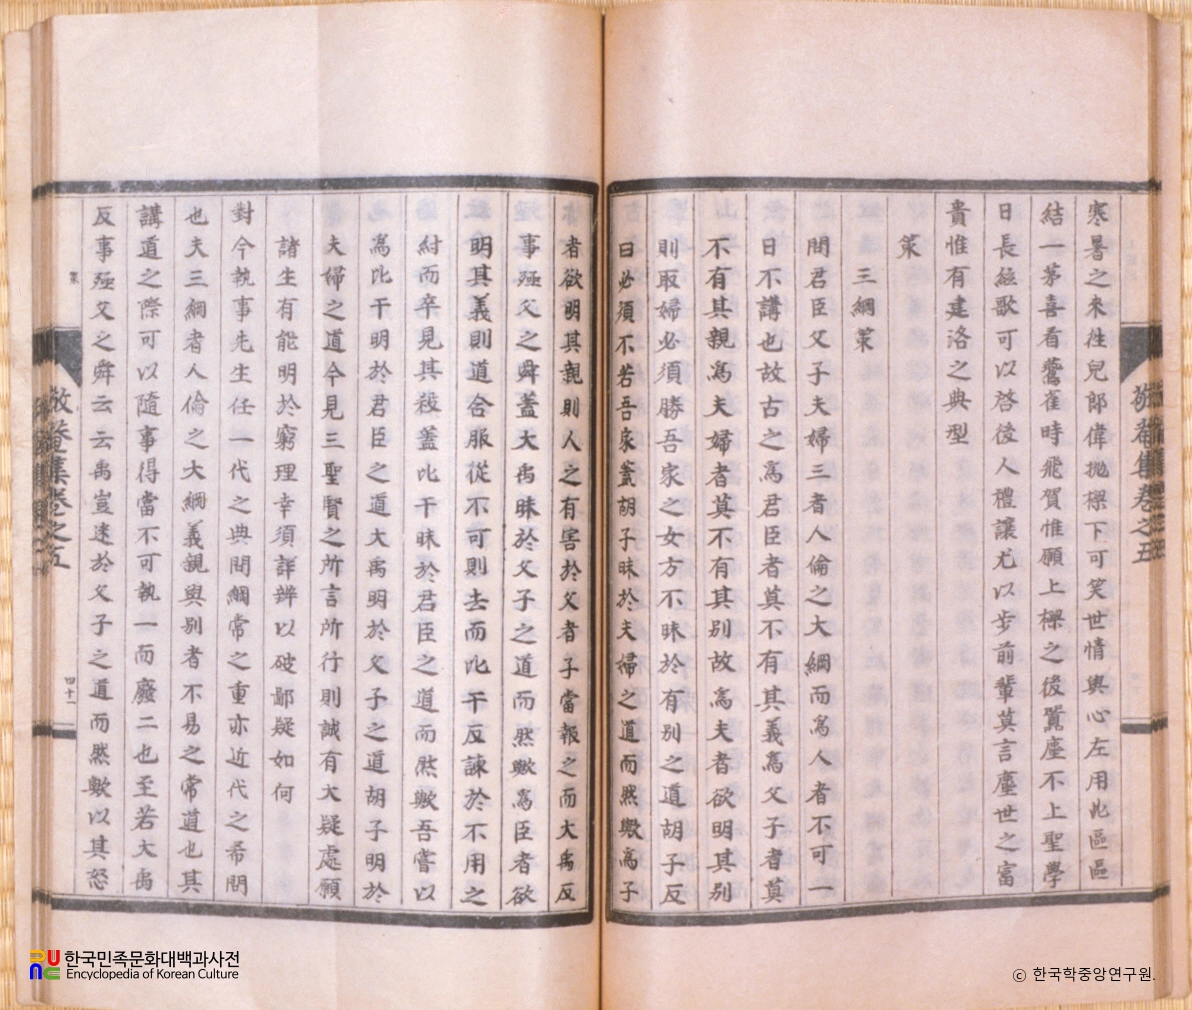 寒暑之來徃兒郞偉抛樑下可笑世情與心左用此區區
結一茅喜看鸎雀時飛賀惟願上樑之後黌座不上聖學
日長絃歌可以啓後人禮讓尤以步前輩莫言塵世之富
貴惟有建洛之典型
策
三綱策
問君臣父子夫婦三者人倫之大綱而爲人者不可一
日不講也故古之爲君臣者莫不有其義爲父子者莫
不有其親爲夫婦者莫不有其別故爲夫者欲明其別
則取婦必須勝吾家之女方不昧於有別之道胡子反
曰必須不若吾家蓋胡子昧於夫婦之道而然歟爲子
者欲明其親則人之有害於父者子當報之而大禹反
事殛父之舜蓋大禹昧於父子之道而然歟爲臣者欲
明其義則道合服從不可則去而比干反諫於不用之
紂而卒見其殺蓋比干昧於君臣之道而然歟吾嘗以
爲比干明於君臣之道大禹明於父子之道胡子明於
夫婦之道今見三聖賢之所言所行則誠有大疑處願
諸生有能明於窮理幸須詳辨以破鄙疑如何
對今執事先生任一代之典問綱常之重亦近代之希問
也夫三綱者人倫之大綱義親與別者不易之常道也其
講道之際可以隨事得當不可執一而廢二也至若大禹
反事殛父之舜云云禹豈迷於父子之道而然歟以其怒
策
敬菴集卷之五
四十一
敬菴集卷之五
한국민족문화대백과사전
Encyclopedia of Korean Culture
ⓒ 한국학중앙연구원.